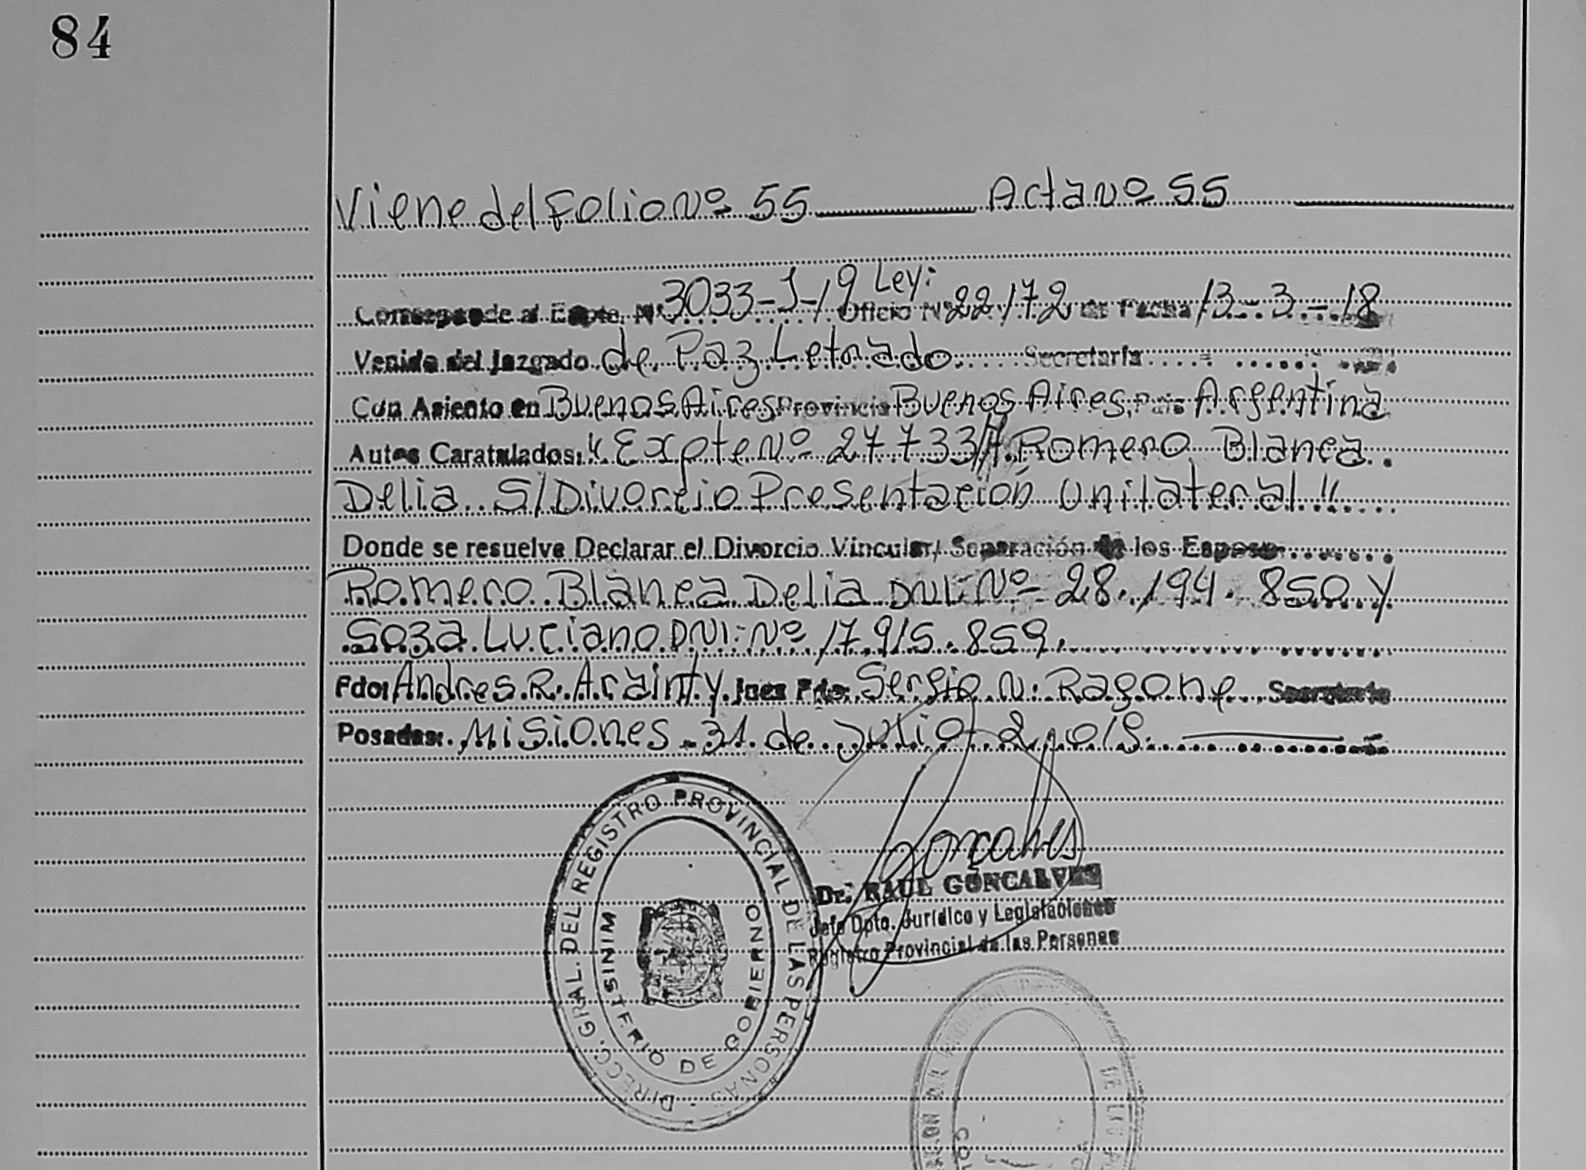 84
Viene del Folio Nº 55 Acta nº 55
Corresponde al Expte. Nº 3033-J-19 Ley: Oficio Nº 22172 de Fecha 13-3-18
Venido del Juzgado de Paz Letrado Secretaría
Con Asiento en Buenos Aires Provincia Buenos Aires, País Argentina
Autos Caratulados: "Expte Nº 277337/ Romero Blanca
Delia S/Divorcio Presentación Unilateral"
Donde se resuelve Declarar el Divorcio Vincular/ Separación de los Esposo
Romero Blanca Delia DNI: Nº 28.194.850 y
Soza Luciano DNI: Nº 17.915.859.
Fdo: Andres R. Arainty Juez Fdo: Sergio N. Ragone Secretario
Posadas: Misiones 31 de Julio 2019
Goncalves
Dr. RAUL GONCALVES
Jefe Dpto. Jurídico y Legislaciones
Registro Provincial de las Personas
DIRECC. GRAL. DEL REGISTRO PROVINCIAL DE LAS PERSONAS
MINISTERIO DE GOBIERNO